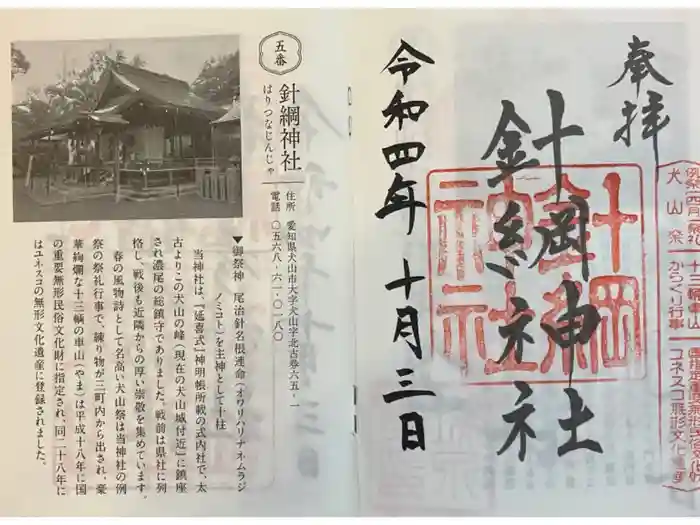 犬山祭
十三輌車山
からくり行事
ユネスコ無形文化遺産
奉拝
針綱神社
針綱神社
令和四年十月三日
五番
針綱神社
はりつなじんじゃ
住所 愛知県犬山市大字犬山字北古券六五‐一
電話 〇五六八‐六一‐〇一八〇
▼御祭神 尾治針名根連命(オワリハリナネムラジ
ノミコト)を主神として十柱
当神社は、『延喜式』神明帳所載の式内社で、太
古よりこの犬山の峰(現在の犬山城付近)に鎮座
され濃尾の総鎮守でありました。戦前は県社に列
格し、戦後も近隣からの厚い崇敬を集めています。
春の風物詩として名高い犬山祭は当神社の例
祭の祭礼行事で、練り物が三町内から出され、豪
華絢爛な十三輌の車山(やま)は平成十八年に国
の重要無形民俗文化財に指定され、同二十八年に
はユネスコの無形文化遺産に登録されました。